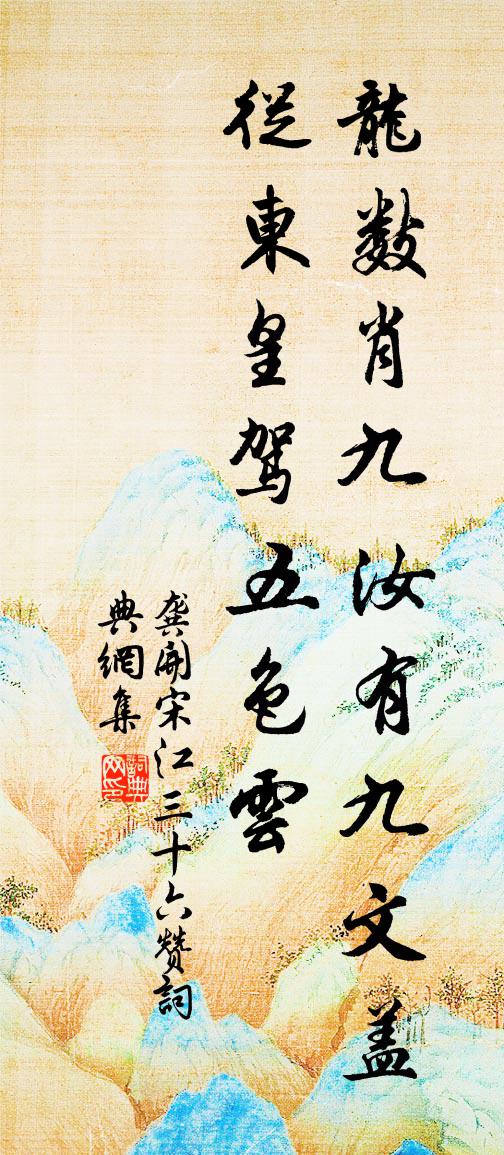 龍數肖九汝有九文盖
從東皇駕五色雲
龔開宋江三十六贊詞
典網集
詞典
网印